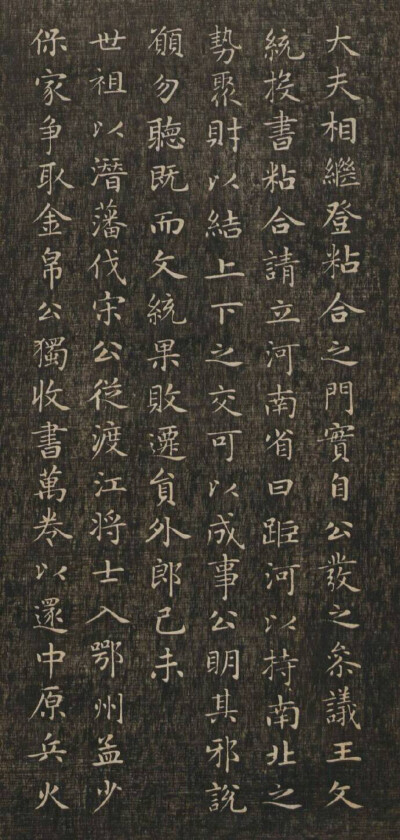 大夫相繼登粘合之門實自公發之叅議王文
統投書粘合請立河南省曰距河以持南北之
勢聚財以結上下之交可以成事公明其邪說
願勿聽既而文統果敗遷員外郎己未
世祖以潛藩伐宋公從渡江將士入鄂州孟少
保家争取金帛公獨收書萬卷以還中原兵火